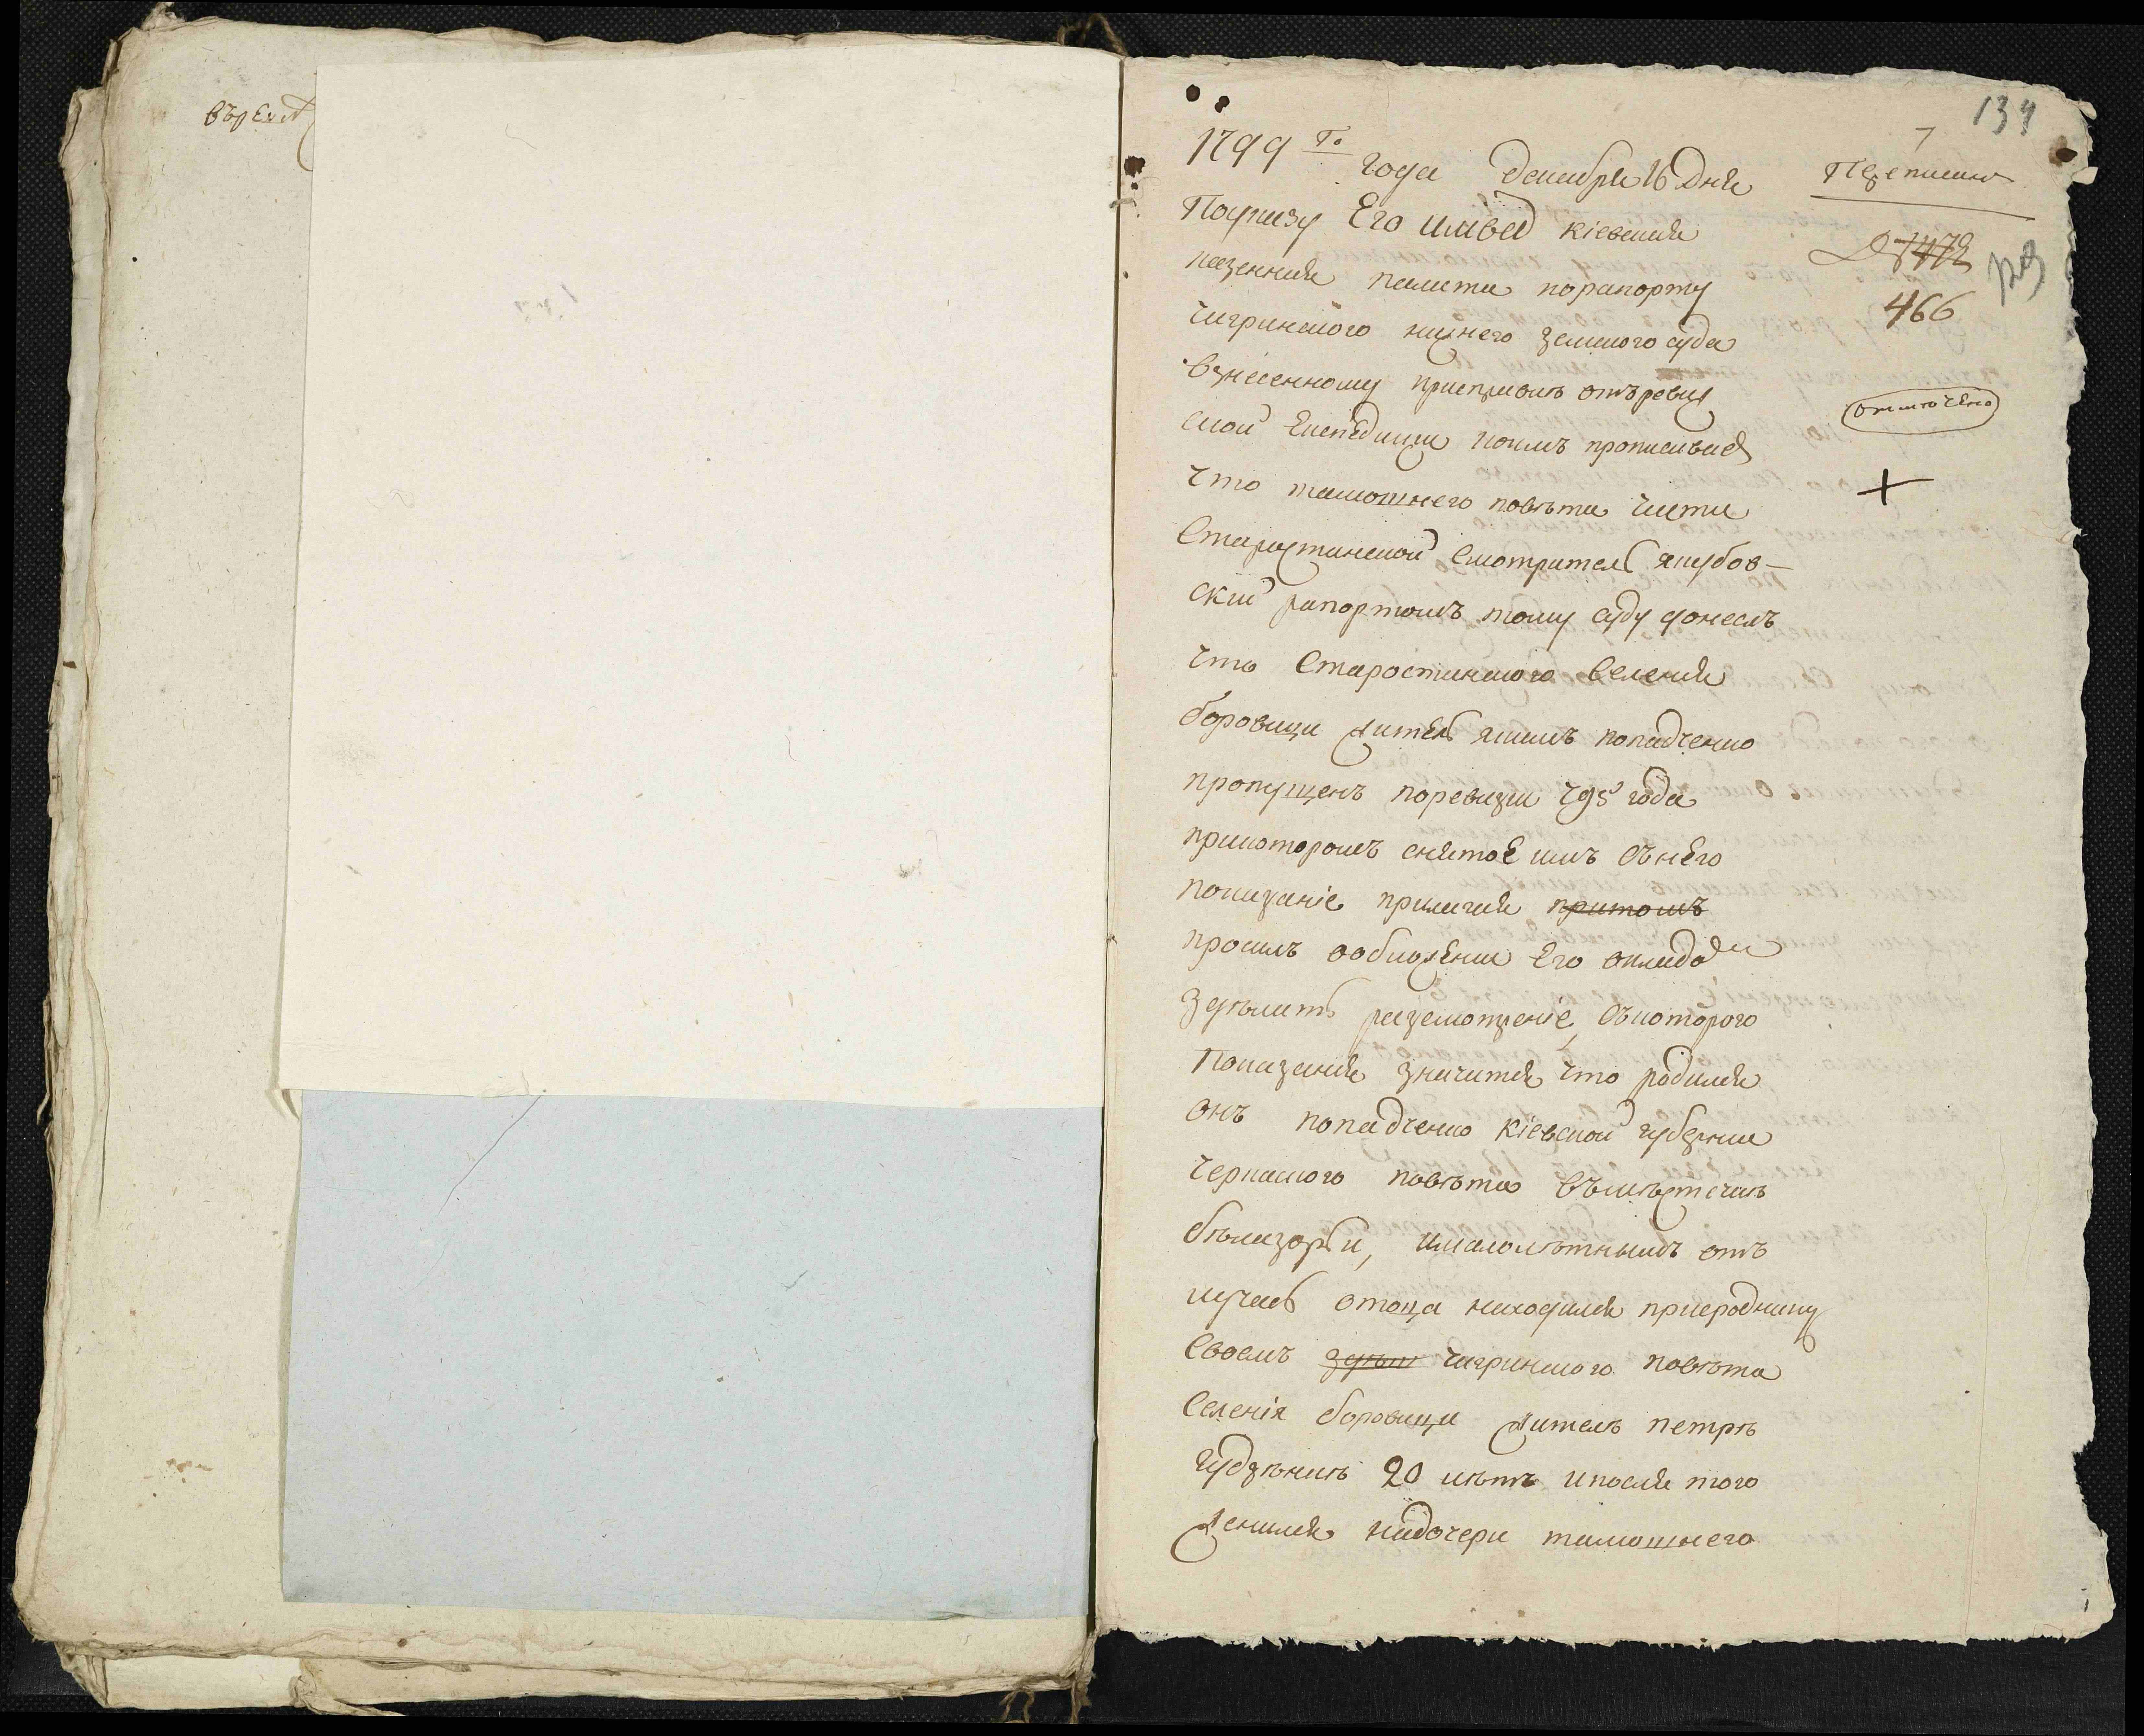 134
7
1799 го года декабря 16 дня
Переписан
По указу Его имва киевская
казенная палата по рапорту
466
чигринского нижнего земского суда
взнесенному при справки отъ ревиз
отмечено
ской Експедиции коимъ прописывая
что тамошнего повѣта части
Старостинской смотритель якубов-
ский рапортомъ тому суду донеслъ
что Старостинского селения
боровици житель якимъ попадченко
пропущенъ по ревизии 795 года
при которомъ снятое имъ съ него
показание прилагая притомъ
просилъ о обложении Его окладомъ
здѣлать разсмотрение, съ которого
показания значится что родился
онъ попадченко киевской губернии
черкаского повѣта въ мѣстечкѣ
бѣлазорьи, и малолѣтнымъ отъ
лучась от отца находился при сроднику
своемъ чигринского повѣта
селения боровици жителѣ петрѣ
20 лѣтъ и после того
женился на дочери тамошнего